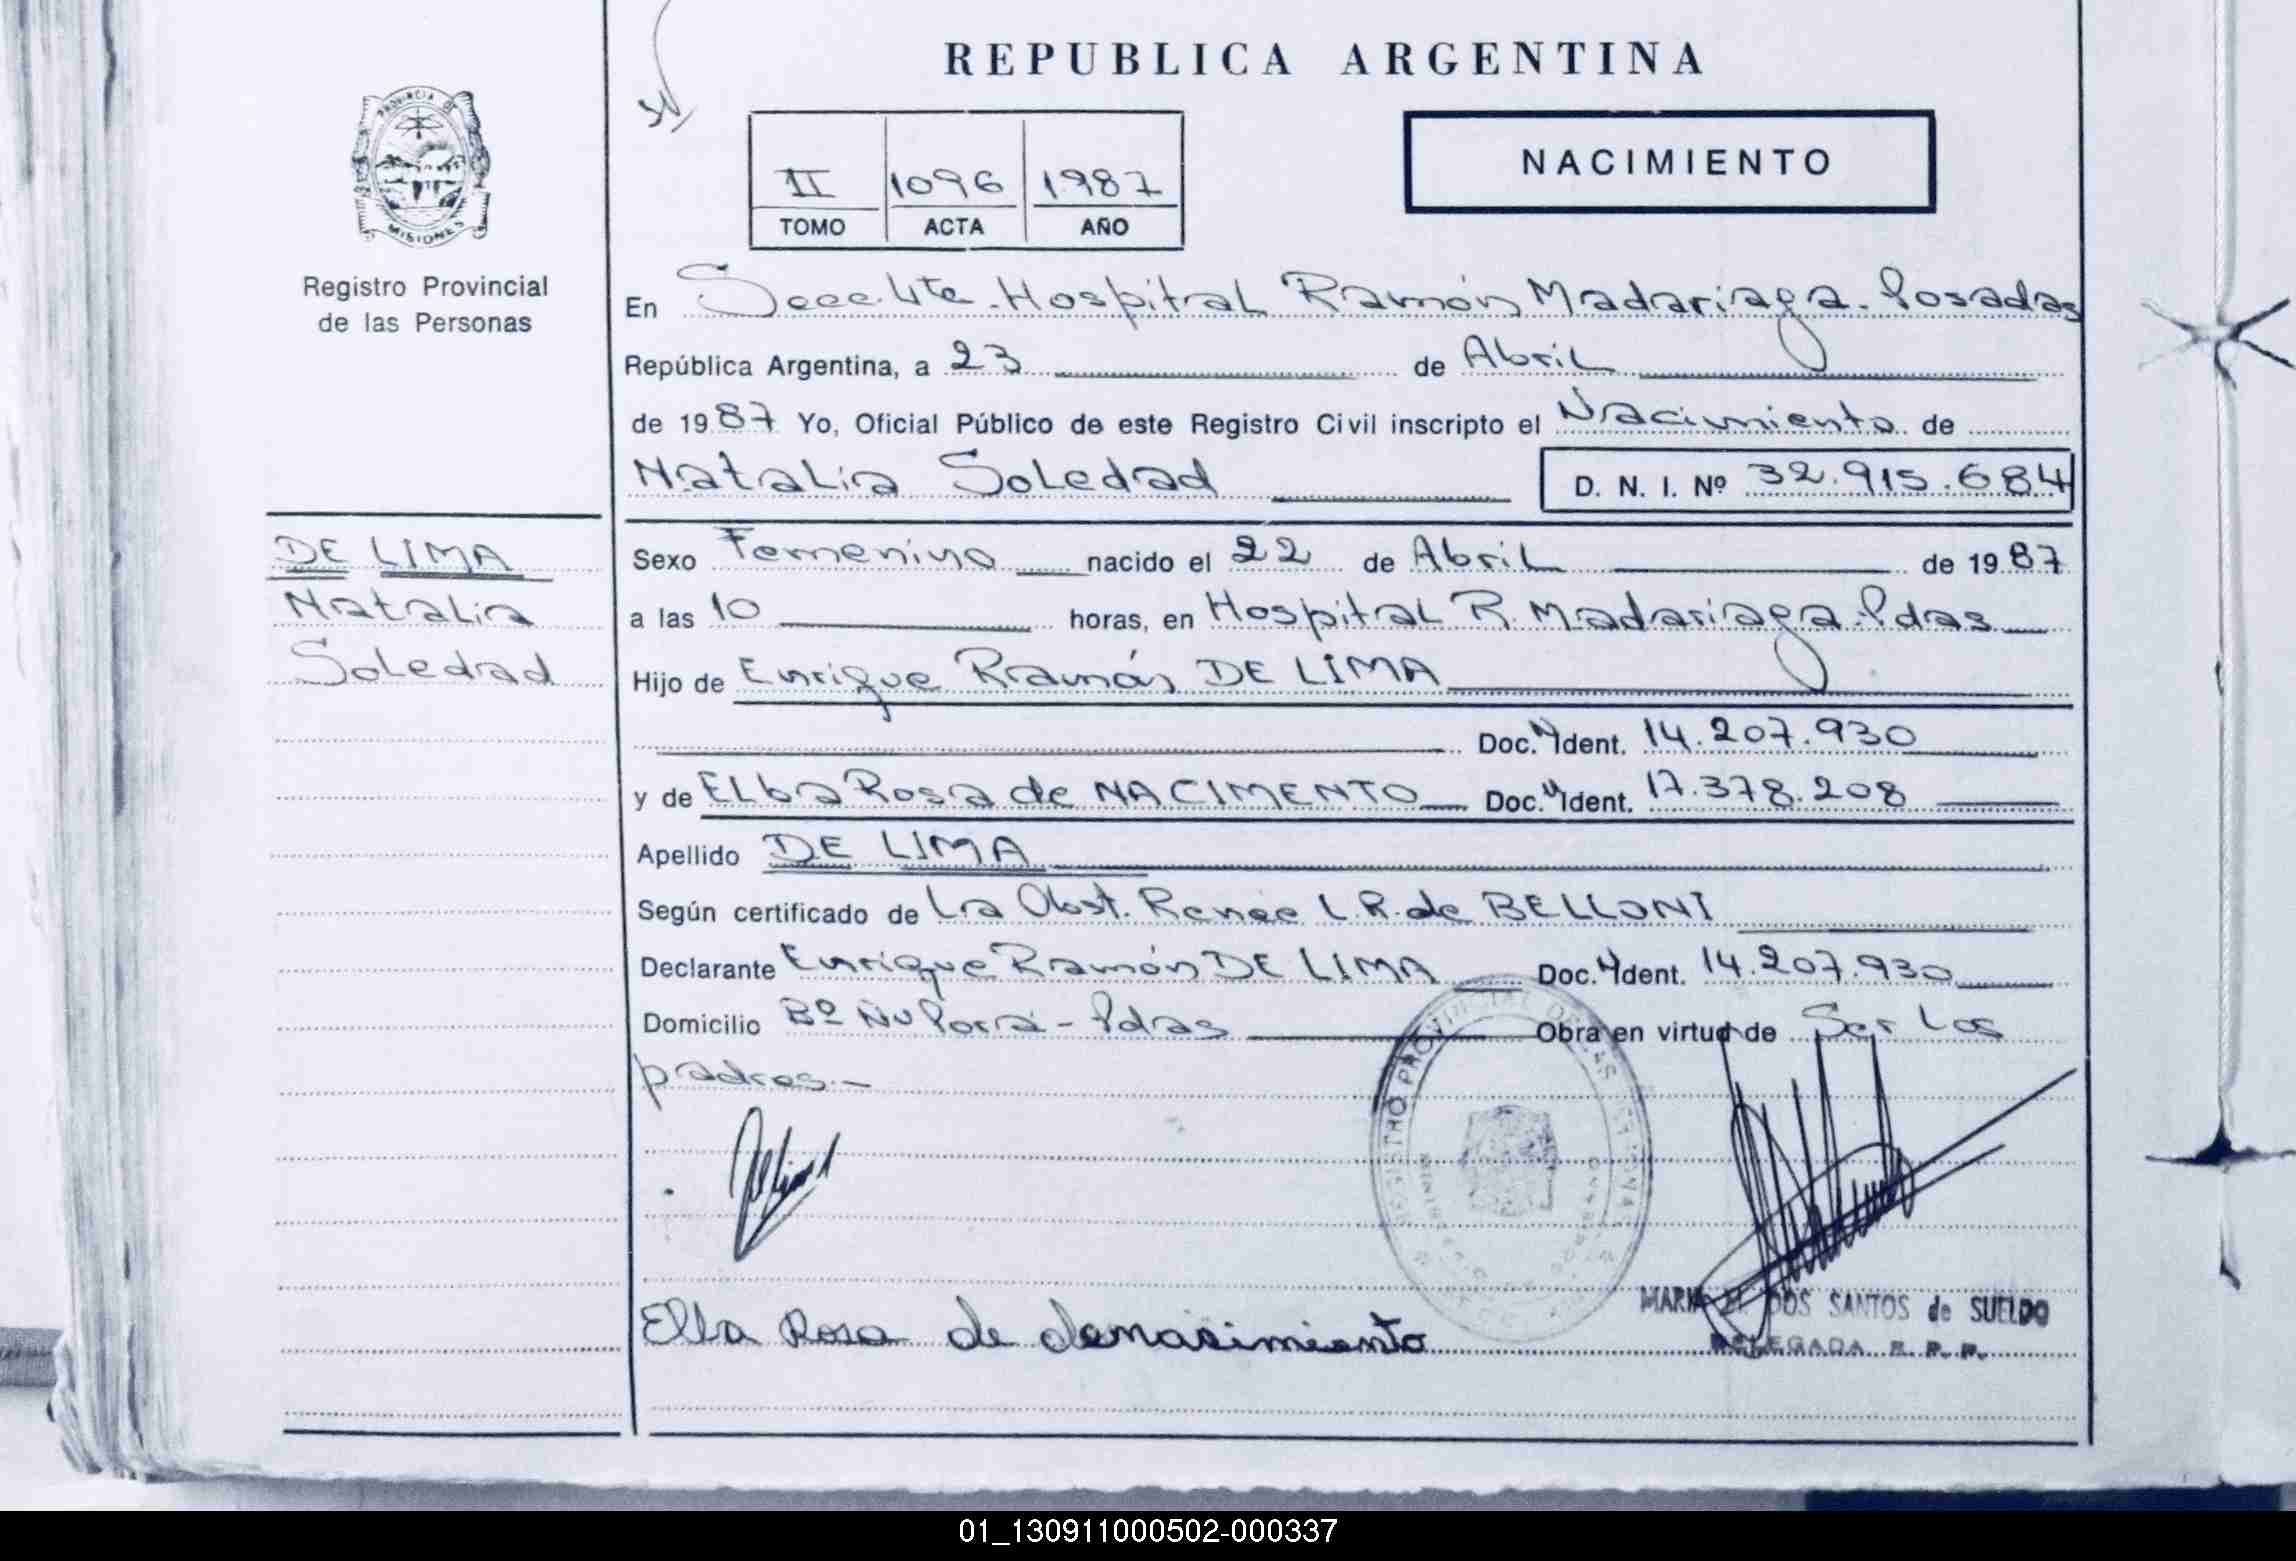 REPUBLICA ARGENTINA
PROVINCIA DE
MISIONES
Registro Provincial
de las Personas
II 1096 1987
TOMO ACTA AÑO
NACIMIENTO
En Secc. 4ta. Hospital Ramón Madariaga. Posadas
República Argentina, a 23 de Abril
de 1987 Yo, Oficial Público de este Registro Civil inscripto el Nacimiento de
Natalia Soledad D. N. I. Nº 32.915.684
DE LIMA
Natalia
Soledad
Sexo Femenino nacido el 22 de Abril de 1987
a las 10 horas, en Hospital R. Madariaga. Pdas
Hijo de Enrique Ramón DE LIMA
Doc. Ident. 14.207.930
y de Elba Rosa de NACIMENTO Doc. Ident. 17.378.208
Apellido DE LIMA
Según certificado de La Obst. Renee L.R. de BELLONI
Declarante Enrique Ramón DE LIMA Doc. Ident. 14.207.930
Domicilio Bº Ñu Porá - Pdas Obra en virtud de Ser Los
padres.-
REGISTRO PROVINCIAL DE LAS PERSONAS
Elba Rosa de denacimiento
DOS SANTOS de SUELDO
DELEGADA R. P. P.
01_130911000502-000337